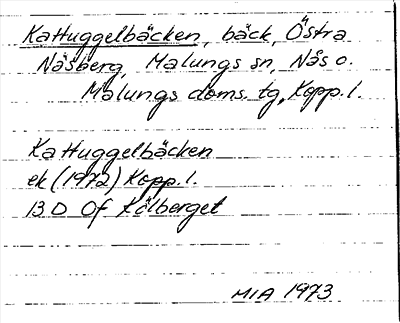 Kattuggelbäcken, bäck, Östra
Näsberg, Malungs sn, Nås o.
Malungs doms. tg, Kopp. l.
Kattuggelbäcken
ek (1972) Kopp. l.
13 D 0f Kölberget
MIA 1973